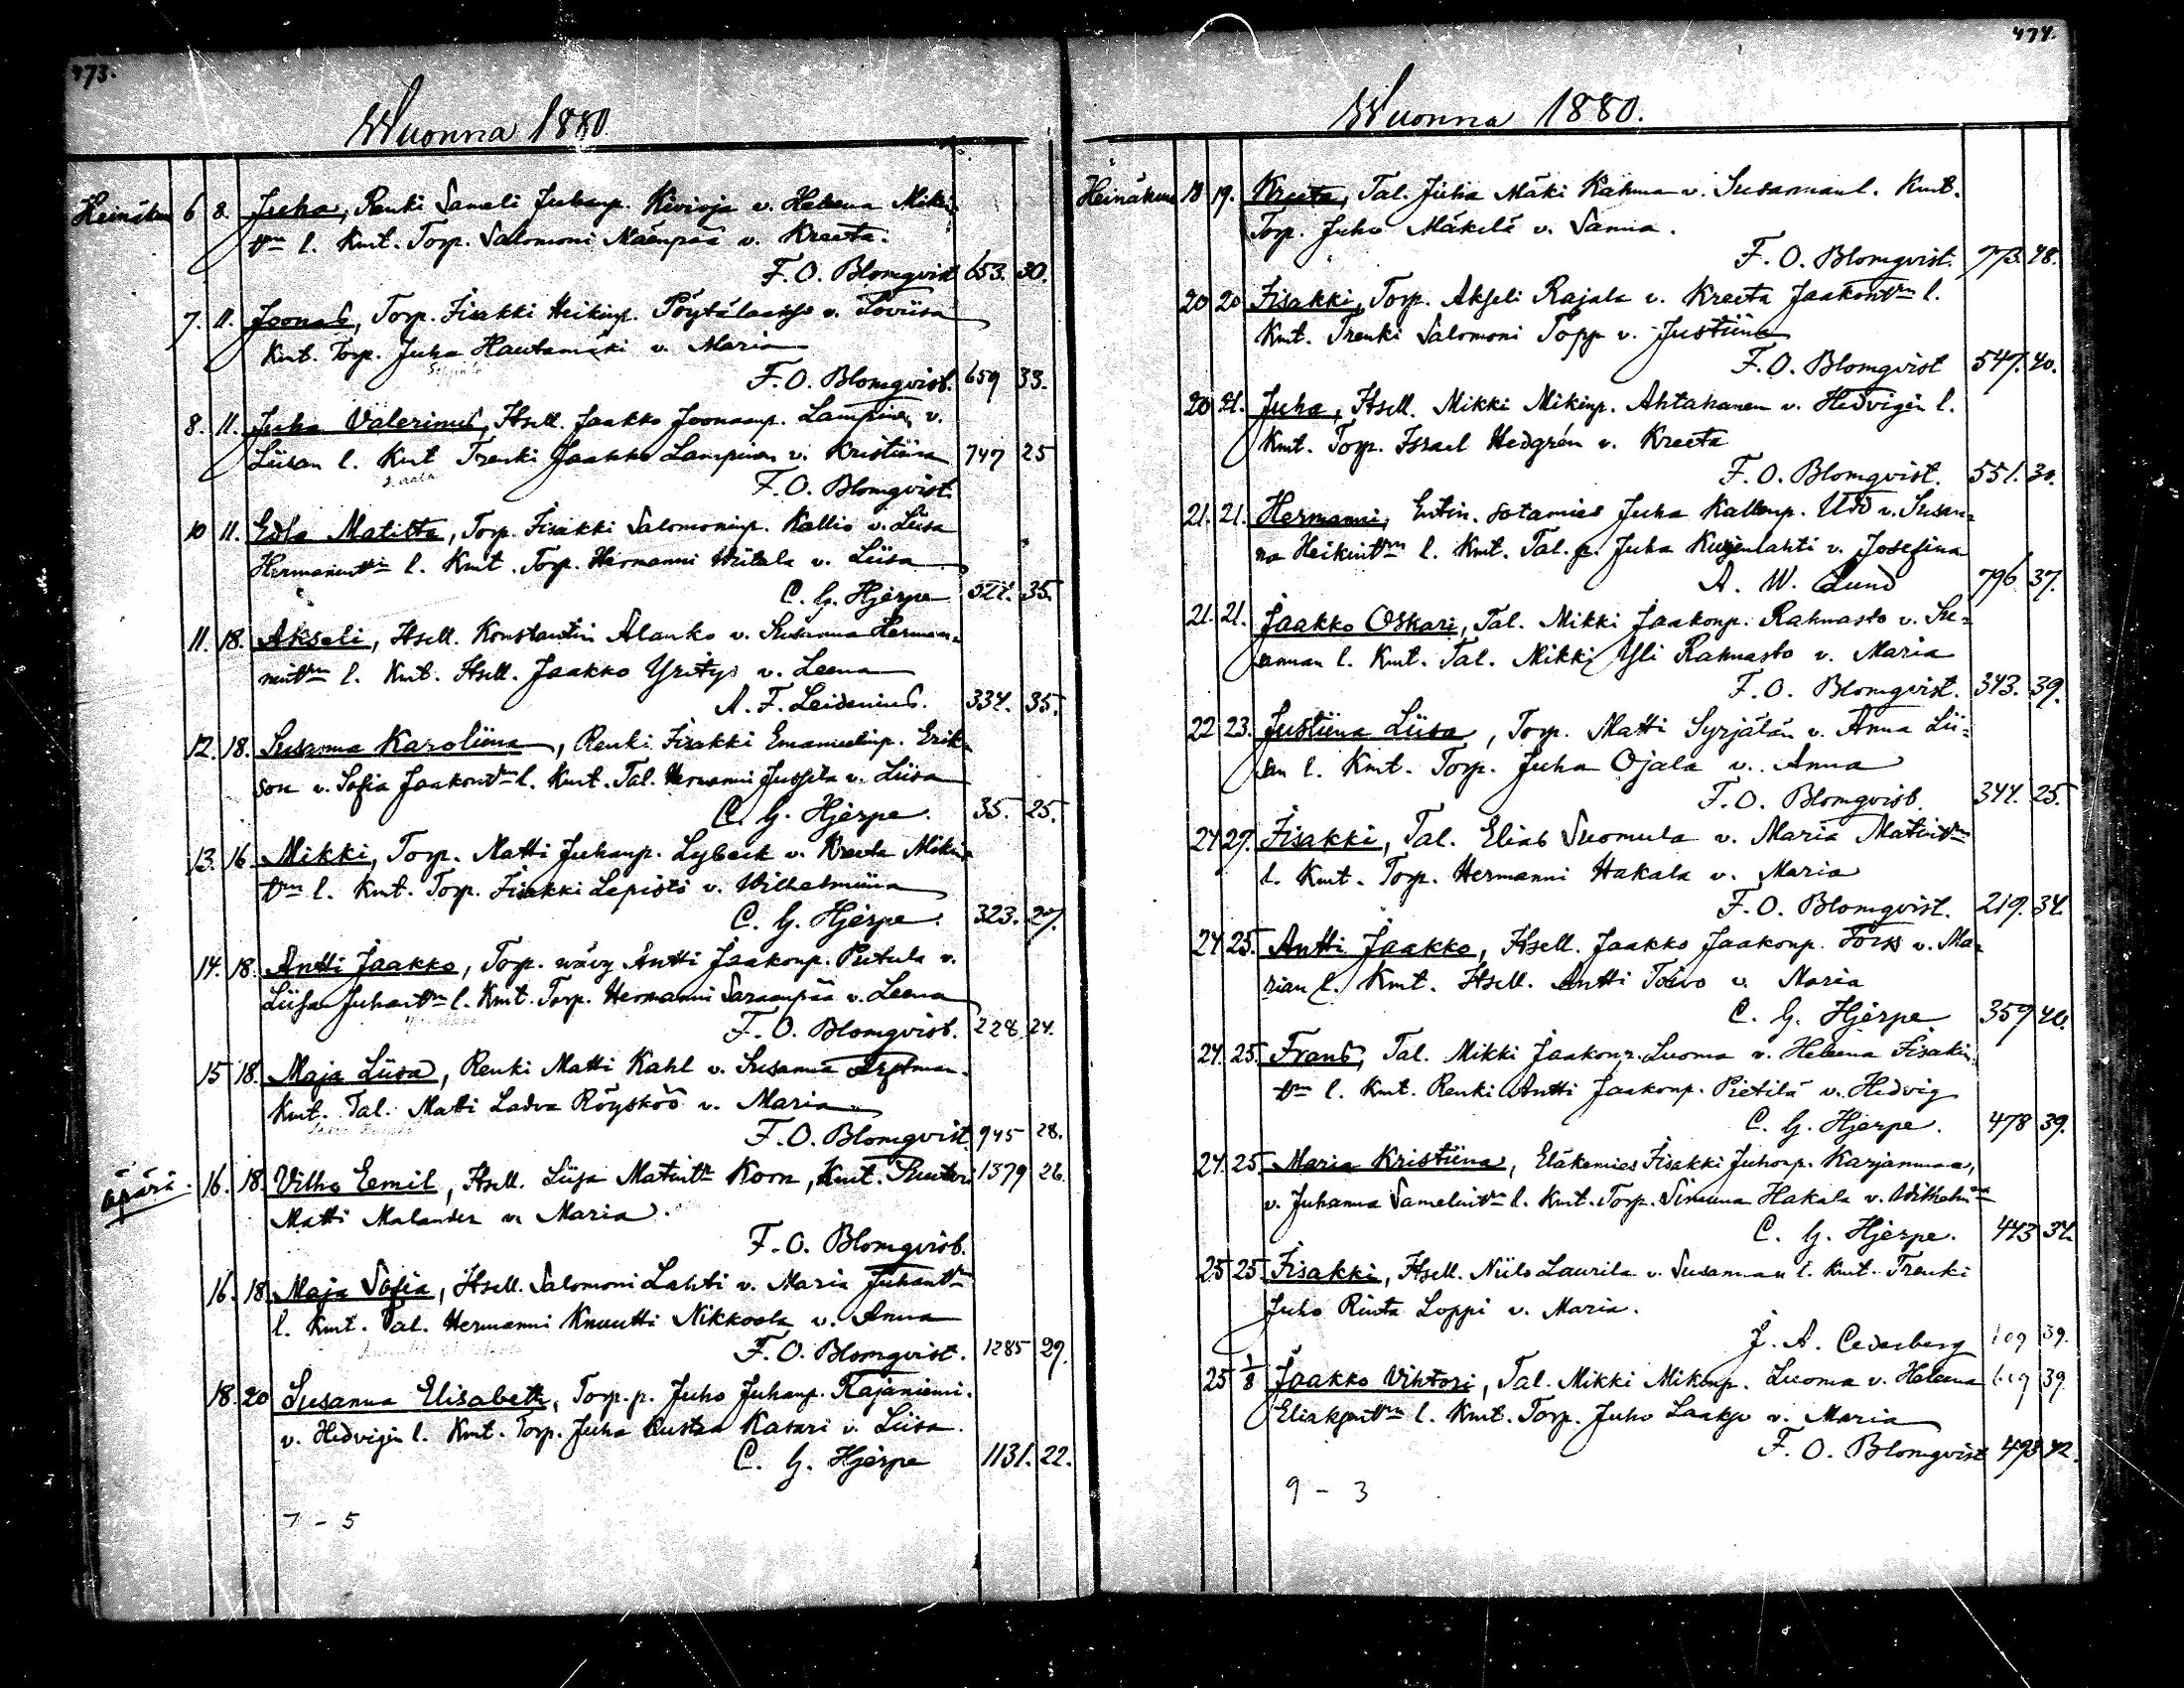 473.
Wuonna 1880.
Heinäkuu 6 8. Juha, Renki Sameli Juhanp. Kivioja v. Helena Miki-
ttrn l. Kmt. Torp. Salomoni Mäenpää v. Kreeta.
F. O. Blomqvist 653. 30.
7. 11. Joonas, Torp. Iisakki Heikinp. Pöytälaakso v. Loviisa
Kmt. Torp. Juha Hautamäki v. Maria
F. O. Blomqvist. 659 33.
8. 11. Juha Valerinus, Itsell. Jaakko Joonasp. Lampinen v.
Liisan l. Kmt Trenki Jaakko Lampinen v. Kristiina 747 25
F. O. Blomqvist.
10 11. Edla Matilta, Torp. Iisakki Salomoninp. Kallio v. Liisa
Hermannintr l. Kmt. Torp. Hermanni Wiitala v. Liisa
C. G. Hjerpe 527. 35.
11. 18. Akseli, Itsell. Konstantin Alanko v. Susanna Herman-
nintrn l. Kmt. Itsell. Jaakko Yritys v. Leena
A. F. Leidenius. 334. 35.
12. 18. Susanna Karoliina, Renki Iisakki Emanuelinp. Erik-
son v. Sofia Jaakontrn l. Kmt. Tal. Hermanni Jussila v. Liisa
C. G. Hjerpe. 35. 25.
13. 16. Mikki, Torp. Matti Juhanp. Lybeck v. Kreeta Miki-
trn l. Kmt. Torp. Iisakki Lepistö v. Wilhelmiina
C. G. Hjerpe. 323. 27.
14. 18. Antti Jaakko, Torp. wävy Antti Jaakonp. Pietula v.
Liisa Juhantrn l. Kmt. Torp. Hermanni Saraanpää v. Leena
F. O. Blomqvist. 228. 24.
15 18. Maja Liisa, Renki Matti Kahl v. Susanna
Kmt. Tal. Matti Ladva Röysköö v. Maria
F. O. Blomqvist 945 28.
äpärä. 16. 18. Vilho Eemil, Itsell. Liisa Matintr Korn, Kmt. Suutari 1379 26.
Matti Malander v. Maria.
F. O. Blomqvist.
16. 18. Maja Sofia, Itsell. Salomoni Lahti v. Maria Juhantr
l. Kmt. Tal. Hermanni Knuutti Nikkoola v. Anna
F. O. Blomqvist. 1285 29.
18. 20 Susanna Elisabeth, Torp. p. Juho Juhanp. Rajaniemi.
v. Hedvigin l. Kmt. Torp. Juha Kustaa Katari v. Liisa.
C. G. Hjerpe 1131. 22.
7 - 5
474.
Wuonna 1880.
Heinäkuu 18 19. Kreeta, Tal. Juha Mäki Rahma v. Susannan l. Kmt.
Torp. Juho Mäkelä v. Sanna.
F. O. Blomqvist. 773. 48.
20 20 Iisakki, Torp. Akseli Rajala v. Kreeta Jaakontrn l.
Kmt. Trenki Salomoni Topp v. Justiina
F. O. Blomqvist 547. 40.
20 21. Juha, Itsell. Mikki Mikinp. Ahtahanen v. Hedvigin l.
Kmt. Torp. Israel Hedgrén v. Kreeta
F. O. Blomqvist. 551. 30.
21. 21. Hermanni, Entin. sotamies Juha Kallenp. Udd v. Susan-
na Heikintrn l. Kmt. Tal. p. Juha Kujenlahti v. Josefina
A. W. Lund 796 37.
21. 21. Jaakko Oskari, Tal. Mikki Jaakonp. Rahnasto v. Su-
sannan l. Kmt. Tal. Mikki Yli Rahnasto v. Maria
F. O. Blomqvist. 343. 39.
22 23. Justiina Liisa, Torp. Matti Syrjälän v. Anna Lii-
san l. Kmt. Torp. Juha Ojala v. Anna
F. O. Blomqvist. 344. 25.
24 29. Iisakki, Tal. Elias Suomula v. Maria Matintrn
l. Kmt. Torp. Hermanni Hakala v. Maria
F. O. Blomqvist. 219. 34.
24 25. Antti Jaakko, Itsell. Jaakko Jaakonp. Fors v. Ma-
rian l. Kmt. Itsell. Antti Toivo v. Maria
C. G. Hjerpe 359 40.
24. 25. Frans, Tal. Mikki Jaakonp. Luoma v. Helena Iisakin
trn l. Kmt. Renki Antti Jaakonp. Pietilä v. Hedvig
C. G. Hjerpe. 478 39.
24. 25 Maria Kristiina, Eläkemies Iisakki Juhonp. Karjanmaa,
v. Juhanna Samelintrn l. Kmt. Torp. Simuna Hakala v. Wilhelmina
C. G. Hjerpe. 443 34.
25 25. Iisakki, Itsell. Niilo Laurila v. Susannan l. Kmt. Trenki
Juho Rinta Loppi v. Maria.
J. A. Cederberg 109 39.
25 1/8 Jaakko Vihtori, Tal. Mikki Mikinp. Luoma v. Helena 619 39.
Eliaksentrn l. Kmt. Torp. Juho Laakso v. Maria
F. O. Blomqvist 493 42.
9 - 3